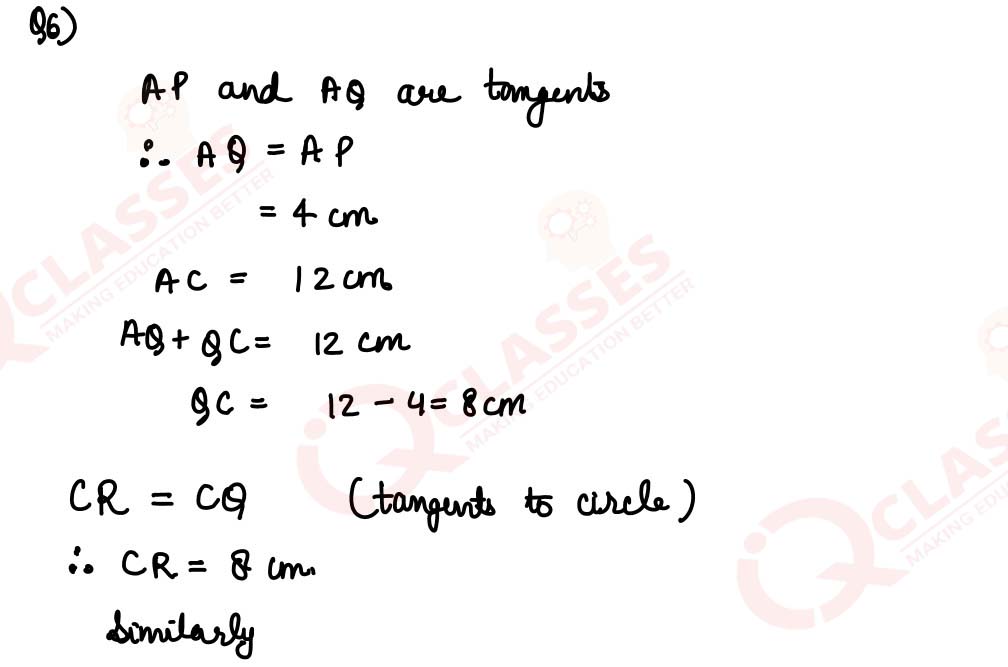 Q6)
AP and AQ are tangents
∴ AQ = AP
= 4 cm
AC = 12 cm
AQ + QC = 12 cm
QC = 12 - 4 = 8 cm
CR = CQ (tangents to circle)
∴ CR = 8 cm.
Similarly
CLASSES
MAKING EDUCATION BETTER
iQ CLASSES
MAKING EDUCATION BETTER
iQ CLASSES
MAKING EDUC